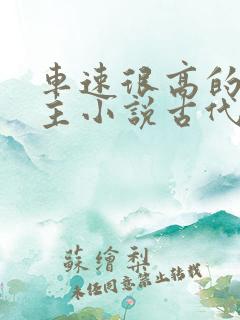 車速很高的
主小說古代
蘇繪梨
未经同意禁止转载